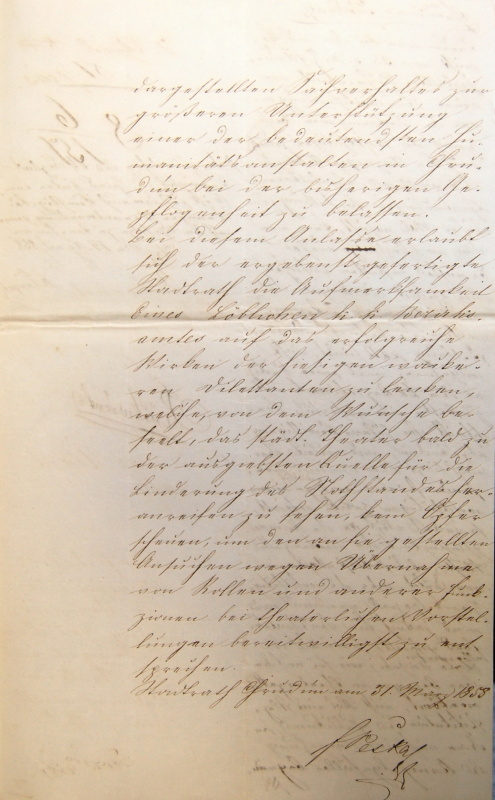 dargestellten Sachverhaltes zur
größeren Unterstützung
einer der bedeutendsten Hu-
manitätsanstalten in Chru-
dim bei der bisherigen Ge-
pflogenheit zu belassen.
Bei diesem Anlaße erlaubt
sich der ergebenst gefertigte
Stadtrath die Aufmerksamkeit
Eines Löblichen k. k. Bezirks-
amtes auf das erfolgreiche
Wirken der hiesigen wacke-
ren Dilettanten zu lenken,
welche, von dem Wunsche be-
seelt, das städt. Theater bald zu
der ausgiebsten Quelle für die
Linderung des Nothstandes her-
anreifen zu sehen, kein Opfer
scheuen, um den an sie gestellten
Ansuchen wegen Übernahme
von Rollen und anderer Funk-
zionen bei theaterlichen Vorstel-
lungen bereitwilligst zu ent-
sprechen.
Stadtrath Chrudim am 31. März 1858